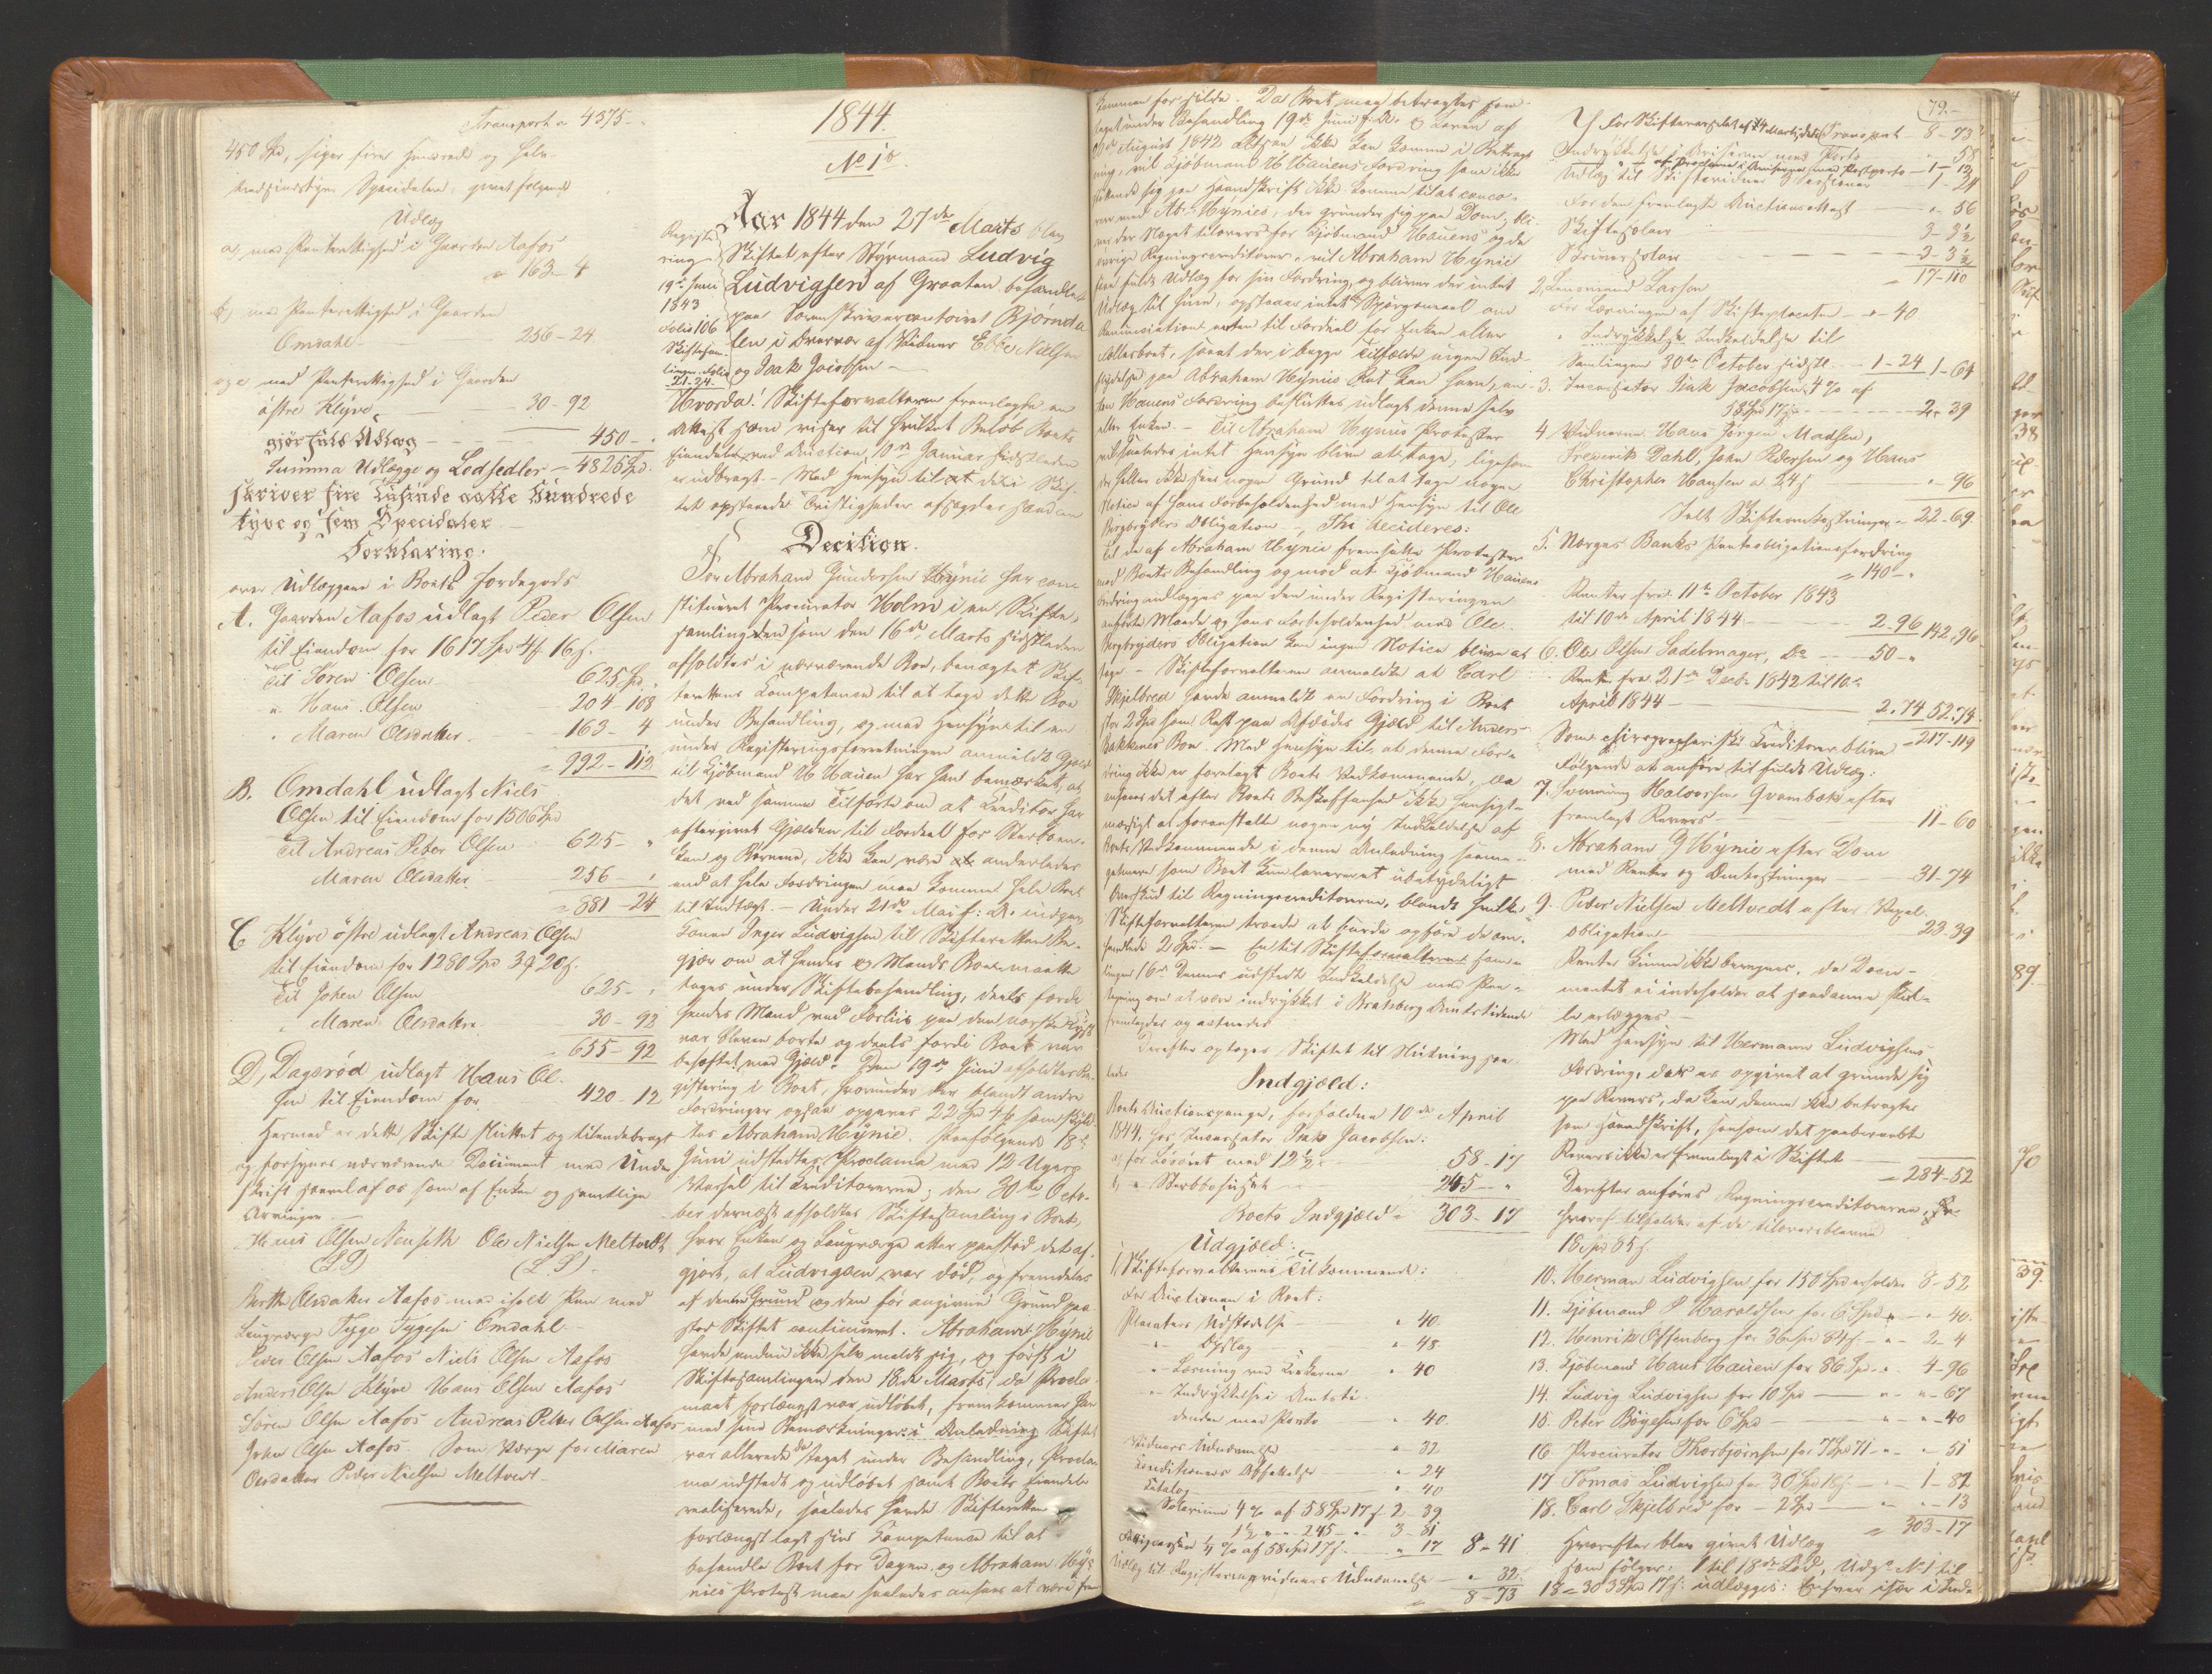 Transport a 4375 -
450 Spd, siger fire Hundrede og halv-
tredsindstyve Specidaler, givet følgende
Udlæg
a, med Panterettighed i Gaarden Aafos
" 163 - 4
b, med Panterettighed i Gaarden
Omdahl 256 - 24
og c med Panterettighed i Gaarden
østre Klyve 30 - 92
gjør fuld Udlæg - 450 -
Summa Udlægge og Lodsedler - 4825 Spd.
skriver fire Tusinde aatte Hundrede
tyve og fem Specidaler
Forklaring
over Udlæggene i Boets Jordegods
A. Gaarden Aafos udlagt Peder Olsen
til Eiendom for 1617 Spd 4 16 s.
Til Søren Olsen 625 Spd
" Hans Olsen 204 - 108
" Maren Olsdatter 163 - 4
992 - 112
B. Omdahl udlagt Niels
Olsen til Eiendom for 1506 Spd
Til Andreas Peter Olsen 625 - "
Maren Olsdatter 256 - "
881 - 24
C Klyve østre udlagt Andreas Olsen
til Eiendom for 1280 Spd 3 20 s.
Til John Olsen 625 - "
" Maren Olsdatter 30 - 92
655 - 92
D, Dagsrød udlagt Hans Ol-
sen til Eiendom for 420 - 12
Hermed er dette Skifte sluttet og tilendebragt
og forsynes nærværende Document med Under
skrift saavel af os som af Enken og samtlige
Arvinger.
Olsen Ole Nielsen Meltvedt
(LS) (L.S)
Berthe Olsdatter Aafos med iholdt Pen med
Laugværge Tyge Tygesen Omdahl
Peder Olsen Aafos Niels Olsen Aafos
Anders Olsen Klyve Hans Olsen Aafos
Søren Olsen Aafos Andreas Peter Olsen Aafos
John Olsen Aafos. Som Værge for Maren
Olsdatter Peder Nielsen Meltvedt
1844.
No 10
Registe
ring
19de Juni
1843
Folio 106
Skiftesam-
lings-Folio
21.24.
Aar 1844 den 27de Marts blev
Skiftet efter Styrmand Ludvig
Ludvigsen af Graaten behandlet
paa Sorenskrivercontoiret Bjørnda
len i Overvær af Vidner Ebbe Nielsen
og Isak Jacobsen
Hvorda! Skifteforvalteren fremlagde en
Attest som viser til hvilket Beløb Boets
Eiendele ved Auction 10de Januar sidstleden
er udbragt. - Med Hensyn til at de i Skif-
tet opstaaede Tvistigheder afsagdes saadan
Decision.
For Abraham Gundersen Hynie har con
stitueret Procurator Holm i en Skifte-
samling den som den 16de Marts sidstleden
afholdtes i nærværende Boe, benægtet Skif-
terettens Competence til at tage dette Boe
under Behandling, og med Hensyn til en
under Registeringsforretningen anmeldt Gjæld
til Kjøbmand H Hauen har han bemærket, at
det ved samme Tilførte om at Creditor har
eftergivet Gjælden til Fordeel for Sterboen-
ken og Børnene, ikke kan være anderledes
end at hele Fordringen maa komme hele Boet
til Indtægt. - Under 21de Mai f: A. indgav
Konen Inger Ludvigsen til Skifteretten Be-
gjær om at hendes og Mands Boe maatte
tages under Skiftebehandling, deels fordi
hendes Mand ved Forliis paa den norske Kyst
var bleven borte og deels fordi Boet var
behæftet med Gjæld. Den 19de Juni afholdtes Re-
gistering i Boet, hvorunder der blandt andre
Fordringer ogsaa opgaves 22 Spd 46 som skyld-
tes Abraham Hynie. Paafølgende 18de
Juni udstedtes Proclama med 12 Ugers
Varsel til Creditorerne; den 30te Octo-
ber dernæst afholdtes Skiftesamling i Boet,
hvor Enken og Laugværge atter paastod det af-
gjort, at Ludvigsen var død, og fremdeles
af denne Grund og den før angivne Grund paa
stod Skiftet continueret. Abraham Hynie
havde endnu ikke selv meldt sig, og først i
Skiftesamlingen den 16de Marts, da Procla-
maet forlængst var udløbet, fremkommer han
med sine Bemærkninger i Anledning Skiftet
var allerede da taget under Behandling, Procla-
ma udstedt og udløbet samt Boets Eiendele
realiserede, saaledes havde Skifteretten
forlængst lagt sin Competence til at
behandle Boet for Dagen. og Abraham Hy-
nies Protest maa saaledes ansees at være frem
kommen for silde. Da Boet maa betragtes som
taget under Behandling 19de Juni f: A. og Loven af
August 1842 altsaa ikke kan komme i Betragt
ning, vil Kjøbmand H Hauens Fordring som ikke
støtter sig paa Haandskrift ikke komme til at concu-
rere med Ab: Hynies, der grunder sig paa Dom; bli-
ver der Noget tilovers for Kjøbmand Hauens og de
øvrige Regningscreditorer, vil Abraham Hynie
have fuldt Udlæg for sin Fordring, og bliver der intet
Udlæg til ham, opstaaer intet Spørgsmaal om
Renunciation enten til Fordeel for Enken eller
Fællesboet, saavel der i begge Tilfælde ingen Ind-
flydelse paa Abraham Hynies Ret kan have, en-
ten Hauens Fordring besluttes udlagt denne selv
eller Enken. - Til Abraham Hynies Protester
vil saaledes intet Hensyn blive at tage, ligesom
der heller ikke sees nogen Grund til at tage nogen
Notice af hans Forbeholdenhed med Hensyn til Ole
Bergbryders Obligation. -, Thi decideres:
Til de af Abraham Hynie fremsatte Protester
mod Boets Behandling og mod at Kjøbmand Hauens
Fordring udlægges paa den under Registeringen
anførte Maade og hans Forbeholdenhed med Ole
Bergbryders Obligation kan ingen Notice blive at
tage - Skifteforvalteren anmeldte at Carl
Skjelbred havde anmeldt en Fordring i Boet
stor 2 Spd som Rest paa Afdødes Gjæld til Anders
Bakkenes Boe. Med Hensyn til, at denne For-
dring ikke er forelagt Boets Vedkommende, da
ansees det efter Boets Beskaffenhed ikke hensigts-
mæssigt at foranstalte nogen ny Indkaldelse af
Boets Vedkommende i denne Anledning saame-
get mere som Boet kun leverer et ubetydeligt
Overskud til Regningscreditorerne, blandt hvilke
Skifteforvalteren troede at burde opføre de om-
handlede 2 Spd. - En til Skifteforvalteren Sam-
lingen 16de Dennes udstedt Indkaldelse med Paa-
tegning om at være indrykket i Bratsberg Amtstidende
fremlagdes og acteredes
Derefter optoges Skiftet til Slutning saa-
ledes
Indgjæld:
Boets Auctionspenge, forfaldne 10de April
1844, hos Incassator Isak Jacobsen:
a, for Løsøret med 12½ 58 - 17
b, " Sterbohuset 245 - "
Boets Indgjæld - 303 - 17
Udgjæld:
1, Skifteforvalterens Tilkommende:
For Auctionen i Boet:
Placaters Udstedelse " 40.
" Opslag " 48
" Læsning ved Kirkerne " 40
" Indrykkelse i Amtsti-
denden med Porto " 40.
Vidners Udnævnelse " 32
Conditioners Affattelse " 24
Catalog " 40
Salarium 4 % af 58 Spd 17 s 2 - 39
1½ " " 245 " 3 - 81
Fattigcassen ¼ % af 58 Spd 17 s. " 17 8 - 41
Udlæg til Registeringsvidners Udnævnelse " 32.
8 - 73
79.-
For Skifteværelset af 24 Marts Transport - 8 - 73
Indrykkelse i Aviserne med Porto " 58
Udlæg til Skiftevidner 1 - 24
For den fremlagte Auctionsattest " 56
Skiftesalair 3 - 3½
Skriversalair 3 - 3½
17 - 110
2, Lensmand Larsen
For Læsningen af Skifteplacaten - " - 40
" Indrykkelse Indkaldelse til
Samlingen 30te October sidstl. 1 - 24 1 - 64
3. Incassator Isak Jacobsen 4 % af
58 Spd 17 s. 2 - 39
4. Vidnerne Hans Jørgen Madsen,
Frederik Dahl, John Pedersen og Hans
Christopher Hansen a 24 s " - 96
Ialt Skifteomkostninger - 22 - 69.
5. Norges Banks Panteobligationsfordring
- 140 - "
Renter fra 11te October 1843
til 10de April 1844. 2.96 142.96
6. Ole Olsen Sadelmager, Do 50 - "
Rente fra 21de Decbr 1842 til 10de
April 1844 2.74 52.74
Som chirographariske Creditorer blive - 217 - 119
Følgende at anføre til fuldt Udlæg:
7. Halvorsen Grombæk efter
fremlagt Revers 11 - 60
8. Abraham G Hynie efter Dom
med Renter og Omkostninger 31 - 74
9. Peder Nielsen Meltvedt efter
Obligation 23 - 39
Renter kunne ikke beregnes, da Docu-
mentet ei indeholder at saadanne skul-
le erlægges -
Med Hensyn til Hermann Ludvigsens
Fordring, der er opgivet at grunde sig
paa Revers, da kan denne ikke betragtes
som Haandskrift, saasom det paaberaabte
Revers ikke er fremlagt i Skiftet
- 284 - 52
Derefter anføres Regningscreditorerne,
hvoraf tilfalder af de tiloversblevne
18 Spd 85 s.
10. Herman Ludvigsen for 150 Spd erholder 8 - 52
11. Kjøbmand P Haraldsen for 6 Spd " " 40.
12. Henrik Offenberg for 36 Spd 84 s. - " 2 - 4
13. Kjøbmand Hans Hauen for 86 Spd " 4 - 96
14. Ludvig Ludvigsen for 10 Spd " " - 67
15. Peter Bøyesen for 6 Spd " " - 40
16 Procurator Thorbjørnsen for 7 Spd 71 " - 51
17 Tomas Ludvigsen for 30 Spd 18 s. 1 - 82
18. Carl Skjelbred for - 2 Spd " - 13
303 - 17
Hvorefter blev givet Udlæg
som følger: 1 til 18de Lod, Udg. No 1 til
18 = 303 Spd 17 s. udlægges: Enhver især i Ind-